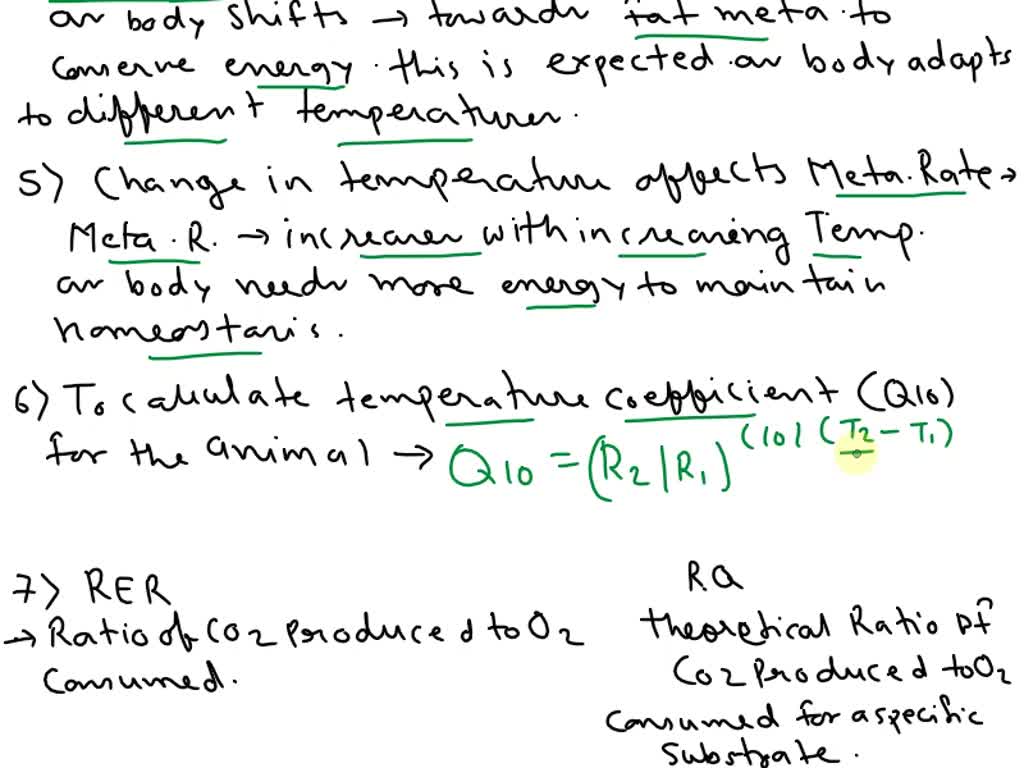 as body shifts → towards fat meta. to
conserve energy. this is expected as body adapts
to different temperatures.
5) Change in temperature affects Meta. Rate →
Meta. R. → increases with increasing Temp.
as body needs more energy to maintain
homeostasis.
6) To calculate temperature coefficient (Q10)
for the animal → Q10 = (R2/R1)^(10) (T2 - T1)
7) RER
→ Ratio of CO2 produced to O2
consumed.
RQ
theoretical Ratio of
CO2 produced to O2
consumed for a specific
substrate.